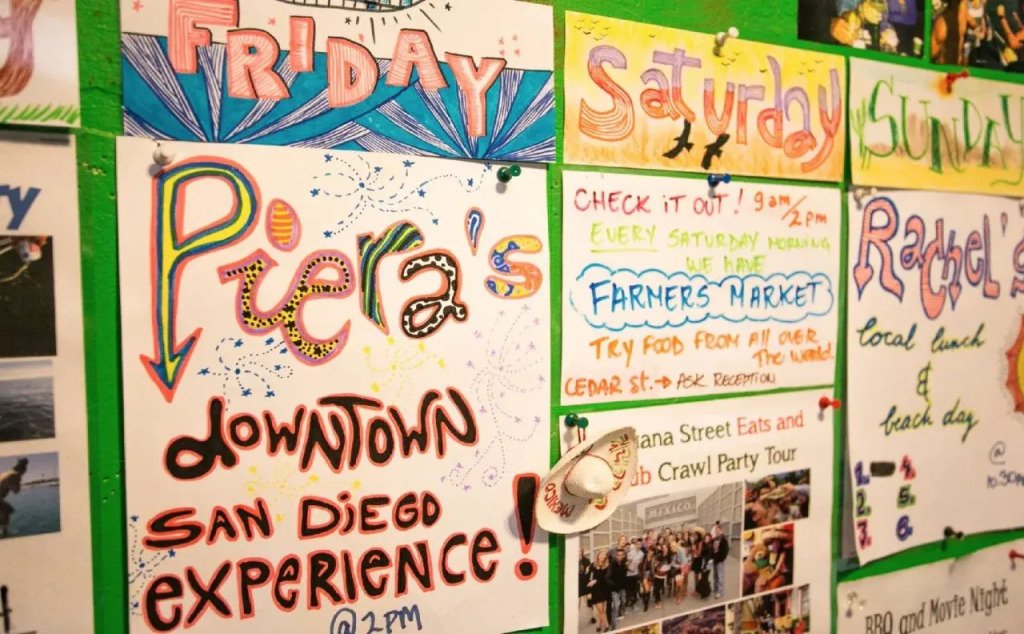 FRIDAY
Piera's
DOWNTOWN
SAN DIEGO
EXPERIENCE!
@ 2PM
Saturday
CHECK iT OUT! 9am/2pm
EVERY SATURDAY MORNING
WE HAVE
FARMERS MARKET
TRY FOOD FROM ALL OVER
THE World.
CEDAR ST. → ASK RECEPTION
Street Eats and
Crawl Party Tour
MEXICO
SUNDAY
Rachel's
local lunch
&
beach day
@
10.30
1. 4.
2. 5.
3. 6.
BBQ and Movie Night